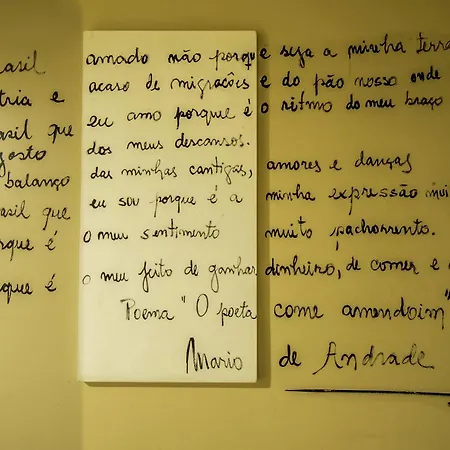 asil amado não porque seja a minha terra
tria e acaso de migrações e do pão nosso onde
asil que eu amo porque é o ritmo do meu braço
gosto dos meus descansos.
balanço das minhas cantigas, amores e danças
asil que eu sou porque é a minha expressão mui
rque é o meu sentimento muito pachorrento.
rque é o meu jeito de ganhar dinheiro, de comer e
Poema "O poeta come amendoim"
Mario de Andrade